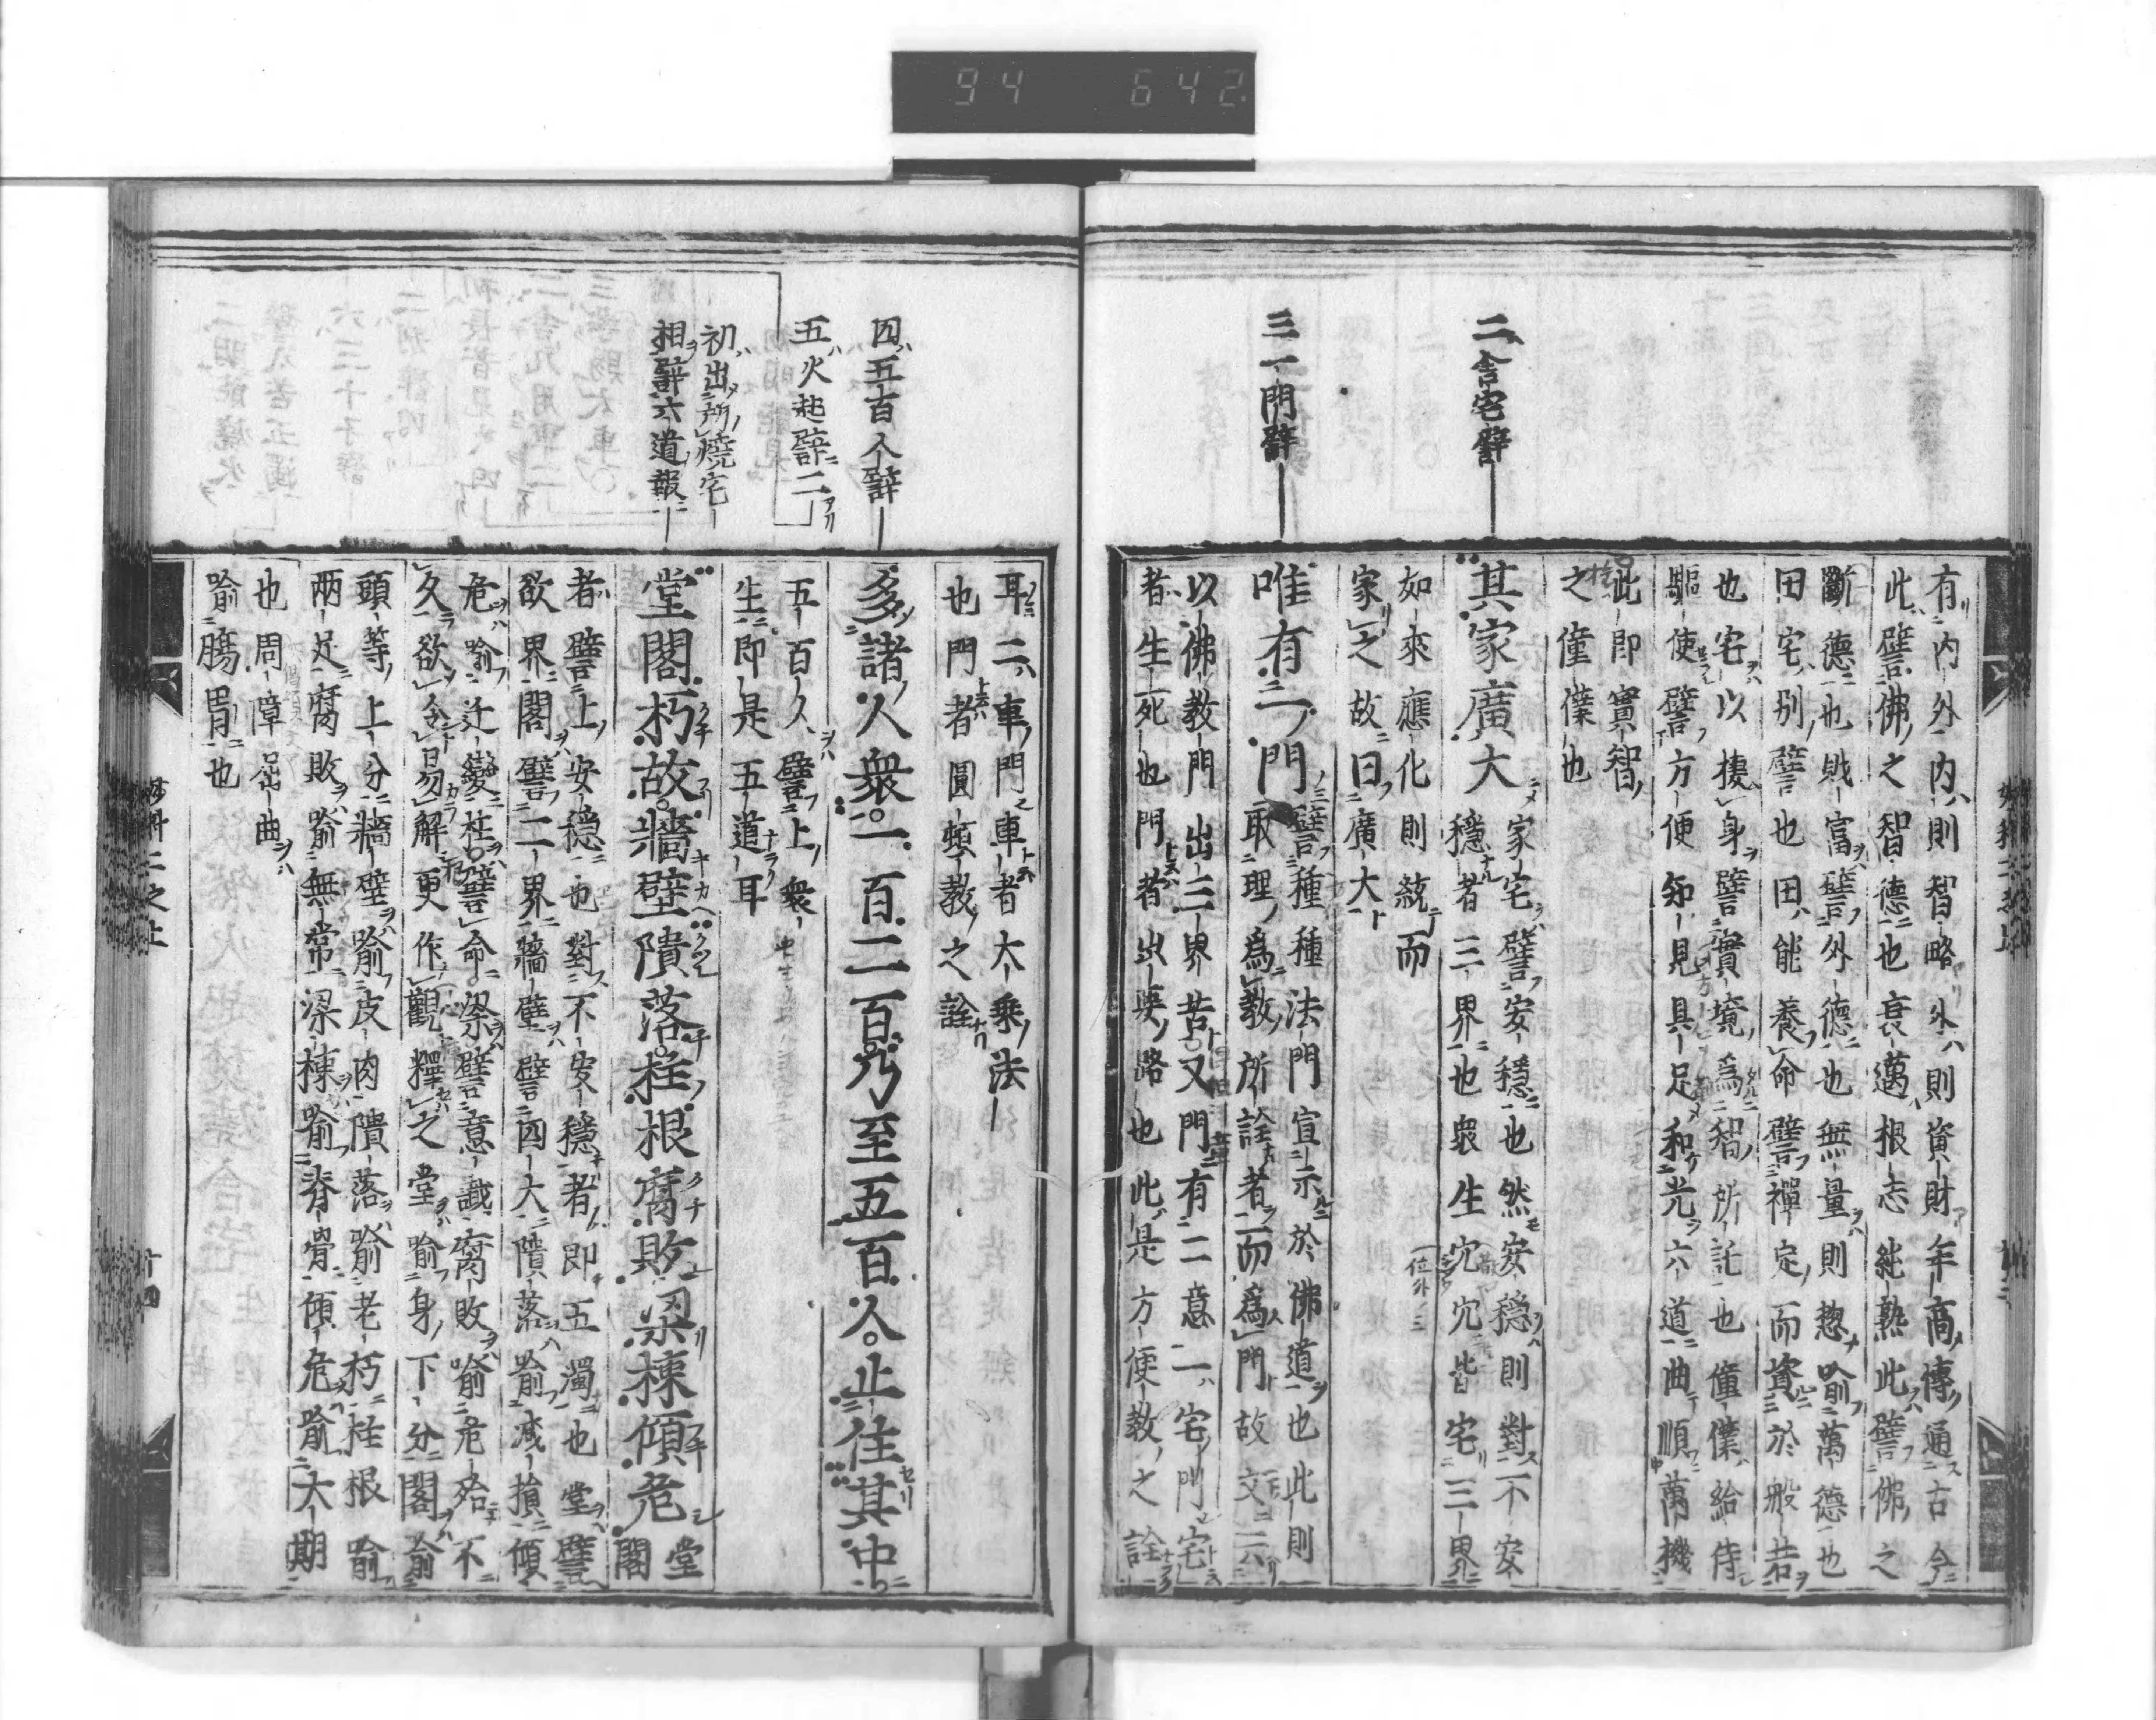 94 642
二舍宅譬
三一門譬
有內外內則智略外則資財年高博通古今
此譬佛之智德也衰邁根志純熟此譬佛之
斷德也財富譬外德也無量則惣喻萬德也
田宅別譬也田能養命譬禪定而資於般若
也宅以棲身譬實境爲智所託也僮僕給侍
驅使譬方便知見具足和光六道曲順萬機
此即實智
之僮僕也
其家廣大
家宅譬安穩也然安穩則對不安
穩者三界也衆生宂宂皆宅三界
如來應化則統而
家之故曰廣大
唯有一門
譬種種法門宣示於佛道也此則
取理爲教所詮者而爲門故文二六
以佛教門出三界苦又門有二意一宅門宅
者生死也門者出要路也此是方便教之詮
四五百人譬
五火起譬二
初出所燒宅
相譬六道報
耳二車門車者大乘法
也門者圓頓教之詮
多諸人衆一百二百乃至五百人止住其中
五百人譬上衆
生即是五道耳
堂閣朽故牆壁隤落柱根腐敗梁棟傾危
堂
閣
者譬上安穩也對不安穩者即五濁也堂譬
欲界閣譬二界牆壁譬四大隤落喻減損傾
危喻遷變柱譬命梁譬意識腐敗喻危殆不
久欲令易解更作觀釋之堂喻身下分閣喻
頭等上分牆壁喻皮肉隤落喻老朽柱根喻
兩足腐敗喻無常梁棟喻脊骨傾危喻大期
也周障屈曲
喻腸胃也